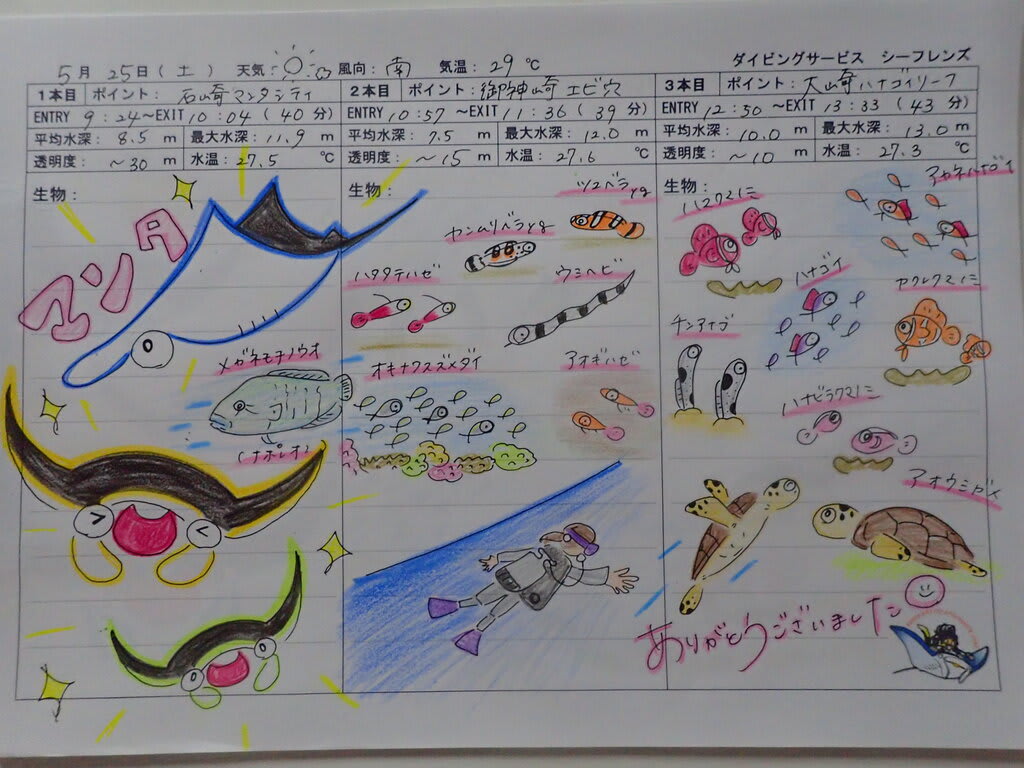 ダイビングサービス シーフレンズ
5月 25日(土) 天気: 風向: 南 気温: 29 ℃
1本目 ポイント: 石崎マンタシティ
ENTRY 9:24~EXIT 10:04 (40分)
平均水深: 8.5 m 最大水深: 11.9 m
透明度: ~30 m 水温: 27.5 ℃
生物:
マンタ
メガネモチノウオ
(ナポレオン)
2本目 ポイント: 御神崎 エビ穴
ENTRY 10:57 ~EXIT 11:36 (39分)
平均水深: 7.5 m 最大水深: 12.0 m
透明度: ~15 m 水温: 27.6 ℃
生物:
ツユベラyg
カンムリベラyg
ハタタテハゼ
ウミヘビ
オキナワスズメダイ
アオギハゼ
3本目 ポイント: 大崎ハナゴイリーフ
ENTRY 12:50 ~EXIT 13:33 (43分)
平均水深: 10.0 m 最大水深: 13.0 m
透明度: ~10 m 水温: 27.3 ℃
生物:
アカネハナゴイ
ハマクマノミ
ハナゴイ
カクレクマノミ
チンアナゴ
ハナビラクマノミ
アオウミガメ
ありがとうございました